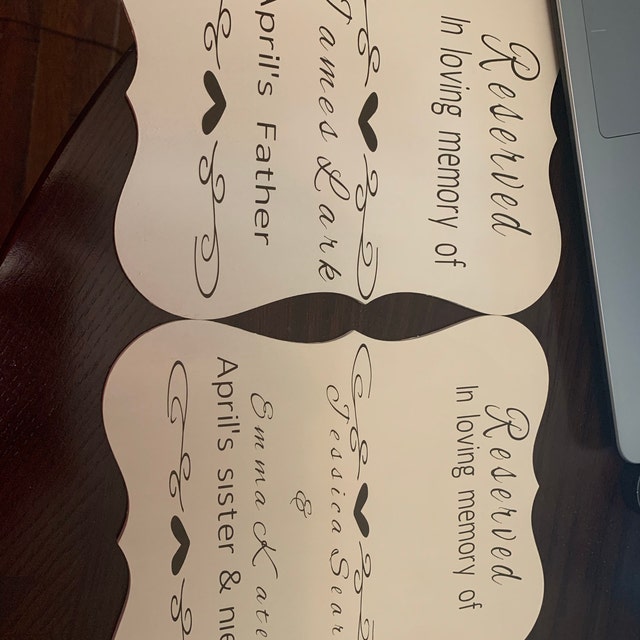 Reserved
In loving memory of
James Lark
April's Father
Reserved
In loving memory of
Jessica Sear
&
Emma Kate
April's sister & nie